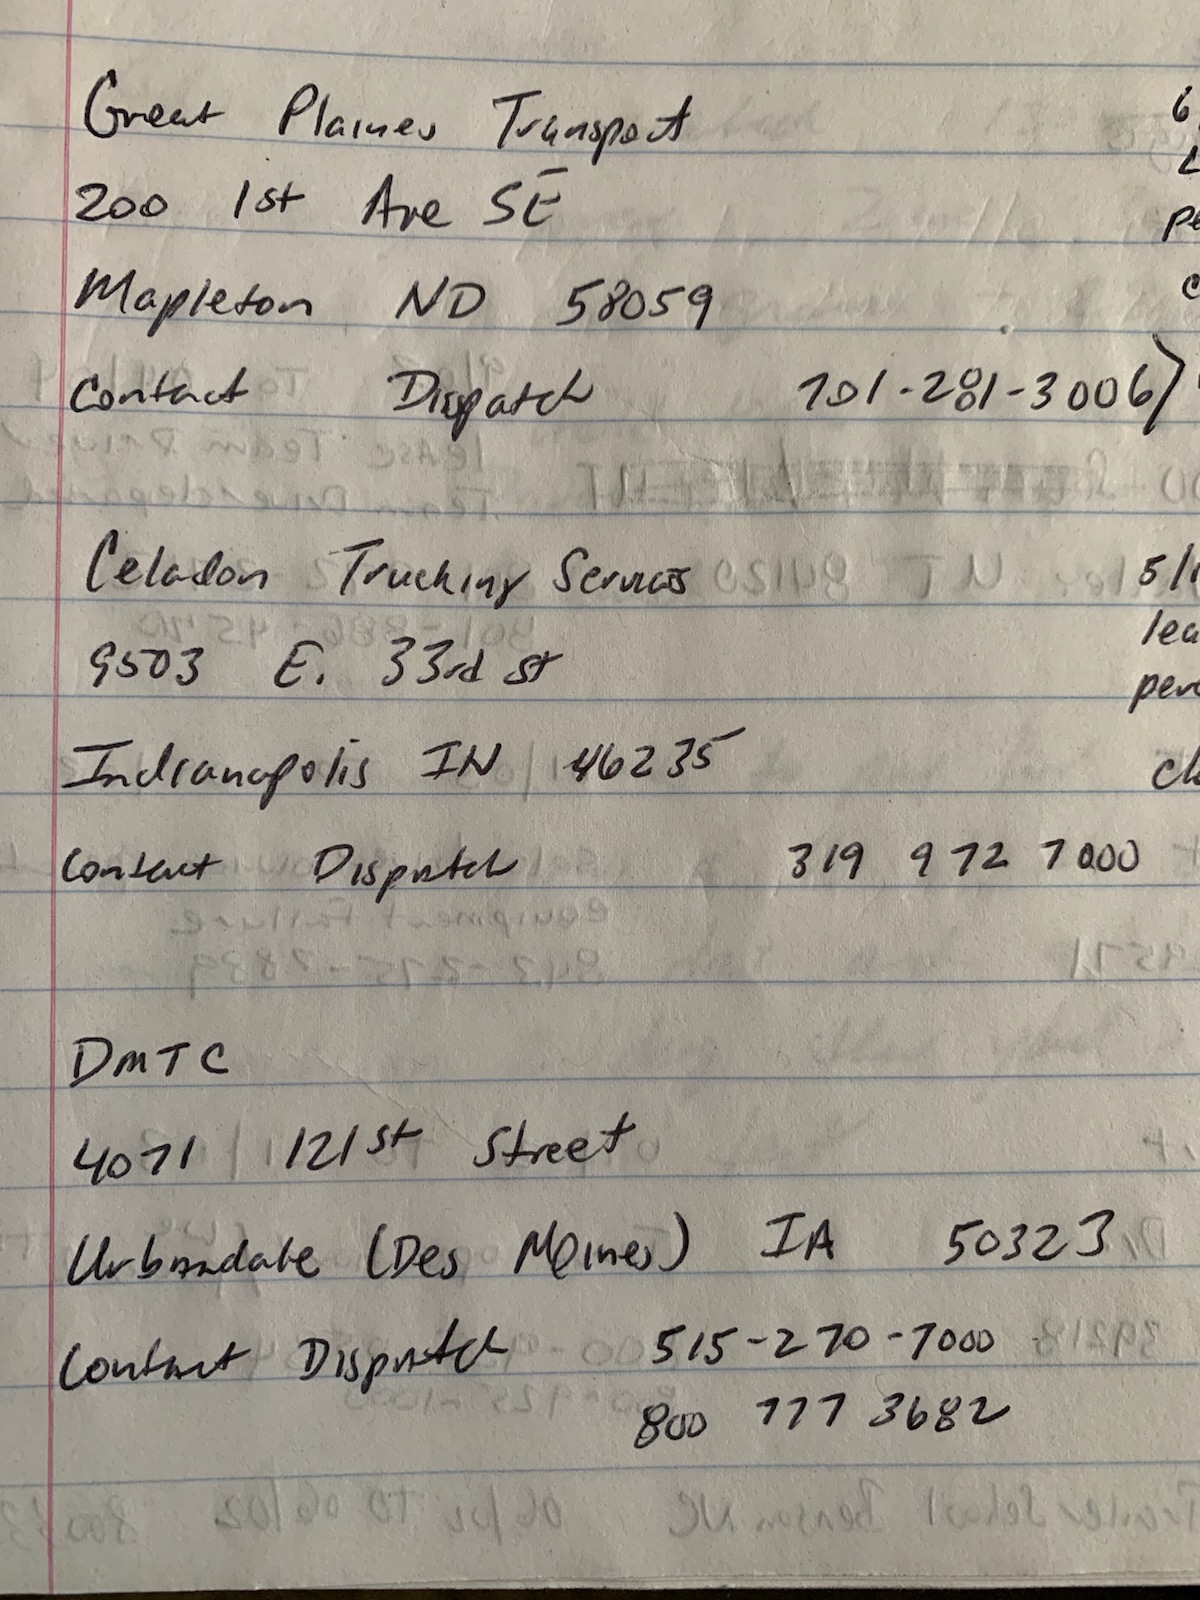 Great Plaines Transport
200 1st Ave SE
Mapleton ND 58059
Contact Dispatch 701-281-3006)
Celadon Trucking Services 5/1
9503 E. 33rd St lea
Indianapolis IN 46235
Contact Dispatch 319 972 7000
DMTC
4071 121st Street
Urbandale (Des Moines) IA 50323
Contact Dispatch 515-270-7000
800 777 3682